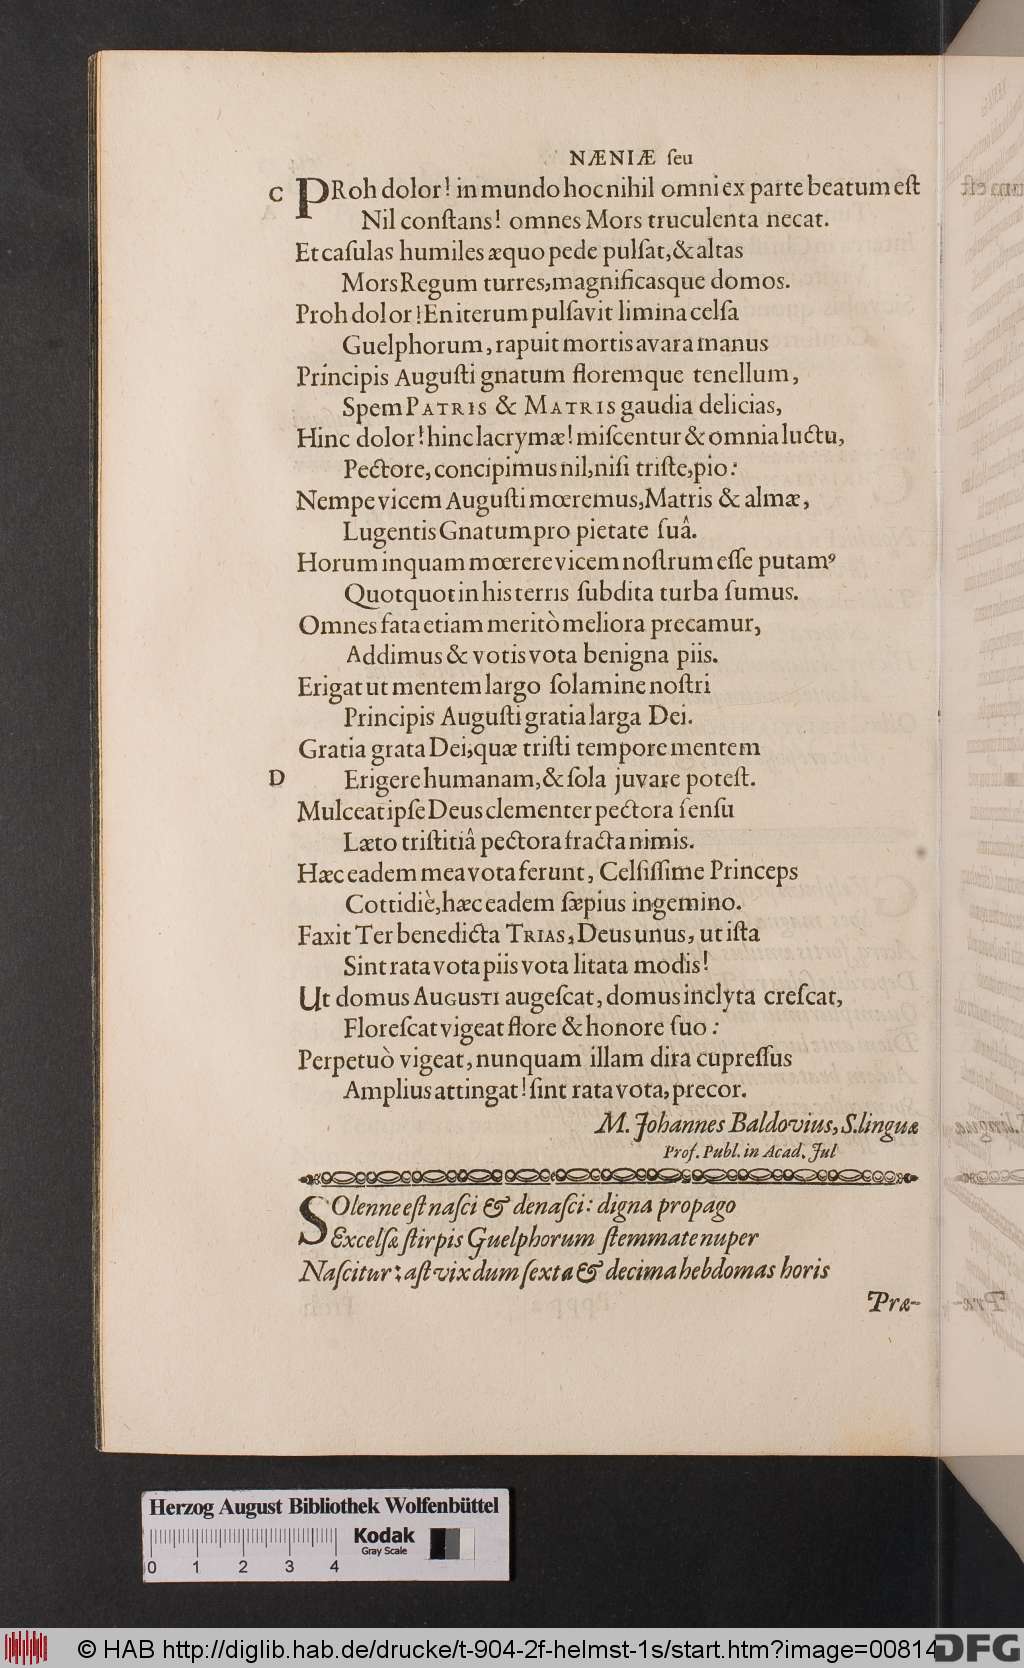 NÆNIÆ ſeu
C PRoh dolor! in mundo hoc nihil omni ex parte beatum eſt
Nil conſtans! omnes Mors truculenta necat.
Et caſulas humiles æquo pede pulſat, & altas
Mors Regum turres, magnificasque domos.
Proh dolor! En iterum pulſavit limina celſa
Guelphorum, rapuit mortis avara manus
Príncipis Auguſti gnatum floremque tenellum,
Spem PATRIS & MATRIS gaudia delicias,
Hinc dolor! hinc lacrymæ! miſcentur & omnia luctu,
Pectore, concipimus nil, niſi triſte, pio:
Nempe vicem Auguſti mœremus, Matris & almæ,
Lugentis Gnatum pro pietate ſuâ.
Horum inquam mœrere vicem noſtrum eſſe putamꝰ
Quotquot in his terris ſubdita turba ſumus.
Omnes fata etiam meritò meliora precamur,
Addimus & votis vota benigna piis.
Erigat ut mentem largo ſolamine noſtri
Principis Auguſti gratia larga Dei.
Gratia grata Dei, quæ triſti tempore mentem
D Erigere humanam, & ſola juvare poteſt.
Mulceat ipſe Deus clementer pectora ſenſu
Læto triſtitiâ pectora fracta nimis.
Hæc eadem mea vota ferunt, Celſiſſime Princeps
Cottidiè, hæc eadem ſæpius ingemino.
Faxit Ter benedicta TRIAS, Deus unus, ut iſta
Sint rata vota piis vota litata modis!
Ut domus AUGUSTI augeſcat, domus inclyta creſcat,
Floreſcat vigeat flore & honore ſuo:
Perpetuò vigeat, nunquam illam dira cupreſſus
Amplius attingat! ſint rata vota, precor.
M. Johannes Baldovius, S. linguæ
Prof. Publ. in Acad. Jul
SOlenne eſt naſci & denaſci: digna propago
Excelſæ ſtirpis Guelphorum ſtemmate nuper
Naſcitur; aſt vix dum ſexta & decima hebdomas horis
Præ-
Herzog August Bibliothek Wolfenbüttel
Kodak
Gray Scale
0 1 2 3 4
© HAB http://diglib.hab.de/drucke/t-904-2f-helmst-1s/start.htm?image=00814
DFG